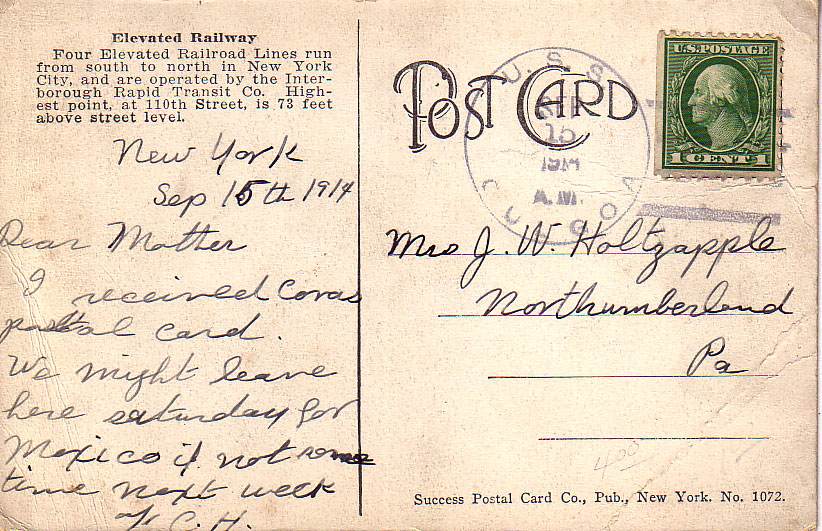 Elevated Railway
Four Elevated Railroad Lines run
from south to north in New York
City, and are operated by the Inter-
borough Rapid Transit Co. High-
est point, at 110th Street, is 73 feet
above street level.
New York
Sep 15th 1914
Dear Mother
I received Coras
postal card.
We might leave
here saturday for
Mexico if not some
time next week
C. H.
POST CARD
U.S.S.
SEP
15
1914
A.M.
U.S. POSTAGE
1 CENT 1
Mrs J. W. Holtzapple
Northumberland
Pa
400
Success Postal Card Co., Pub., New York. No. 1072.